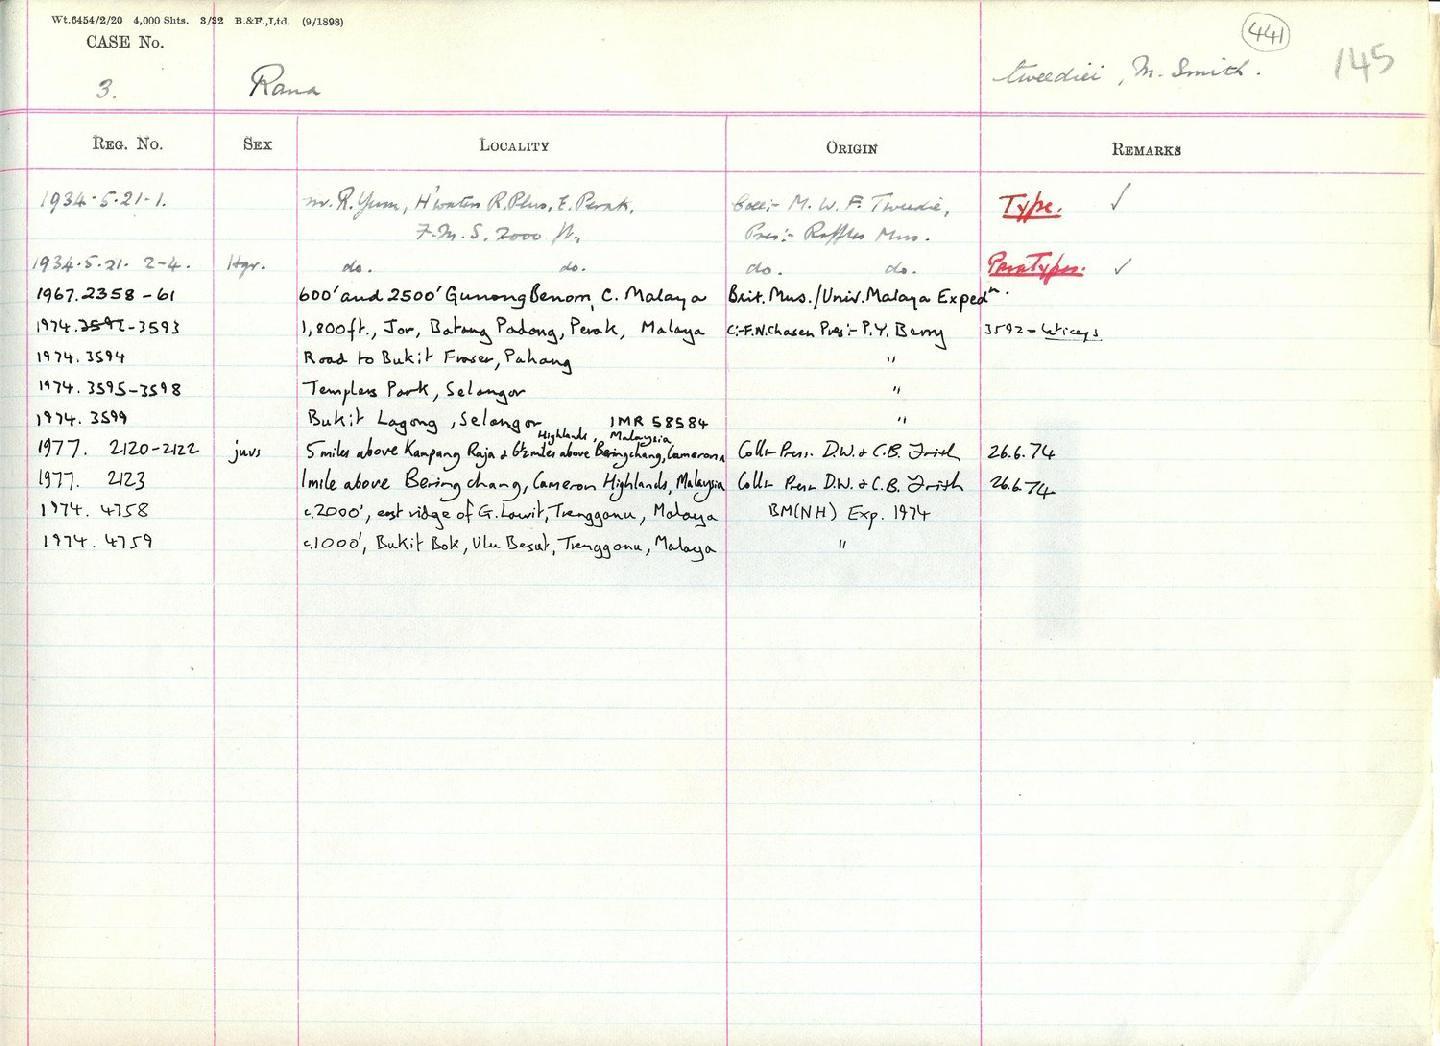 Wt.5454/2/20 4,000 Shts. 3/32 B.&F.,Ltd. (9/1893)
441
CASE No.
145
3. Rana tweediei, M. Smith.
REG. No. SEX LOCALITY ORIGIN REMARKS
1934.5.21-1. nr. R. Yum, H'waters R. Plus, E. Perak, Coll:- M. W. F. Tweedie, Type. ✓
F.M.S. 2000 ft. Pres:- Raffles Mus.
1934.5.21. 2-4. Hgr. do. do. do. do. ParaTypes. ✓
1967.2358-61 600' and 2500' Gunong Benom, C. Malaya Brit. Mus./Univ. Malaya Expedn.
1974.3592-3593 1,800ft., Jor, Batang Padang, Perak, Malaya C:-F.N. Chasen Pres:- P.Y. Berry 3592-
1974.3594 Road to Bukit Fraser, Pahang "
1974.3595-3598 Templers Park, Selangor "
1974.3599 Bukit Lagong, Selangor IMR 58584 "
Highlands, Malaysia
1977. 2120-2122 juvs 5 miles above Kampang Raja & 6½ miles above Beringchang, Cameron Coll & Pres. D.W. & C.B. Frith 26.6.74
1977. 2123 1 mile above Beringchang, Cameron Highlands, Malaysia Coll & Pres D.W. & C.B. Frith 26.6.74
1974. 4758 c.2000', east ridge of G. Lawit, Trengganu, Malaya BM(NH) Exp. 1974
1974. 4759 c.1000', Bukit Bok, Ulu Besut, Trengganu, Malaya "